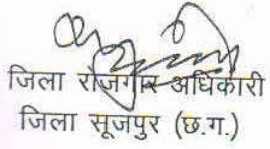 जिला रोजगार अधिकारी
जिला सूजपुर (छ.ग.)